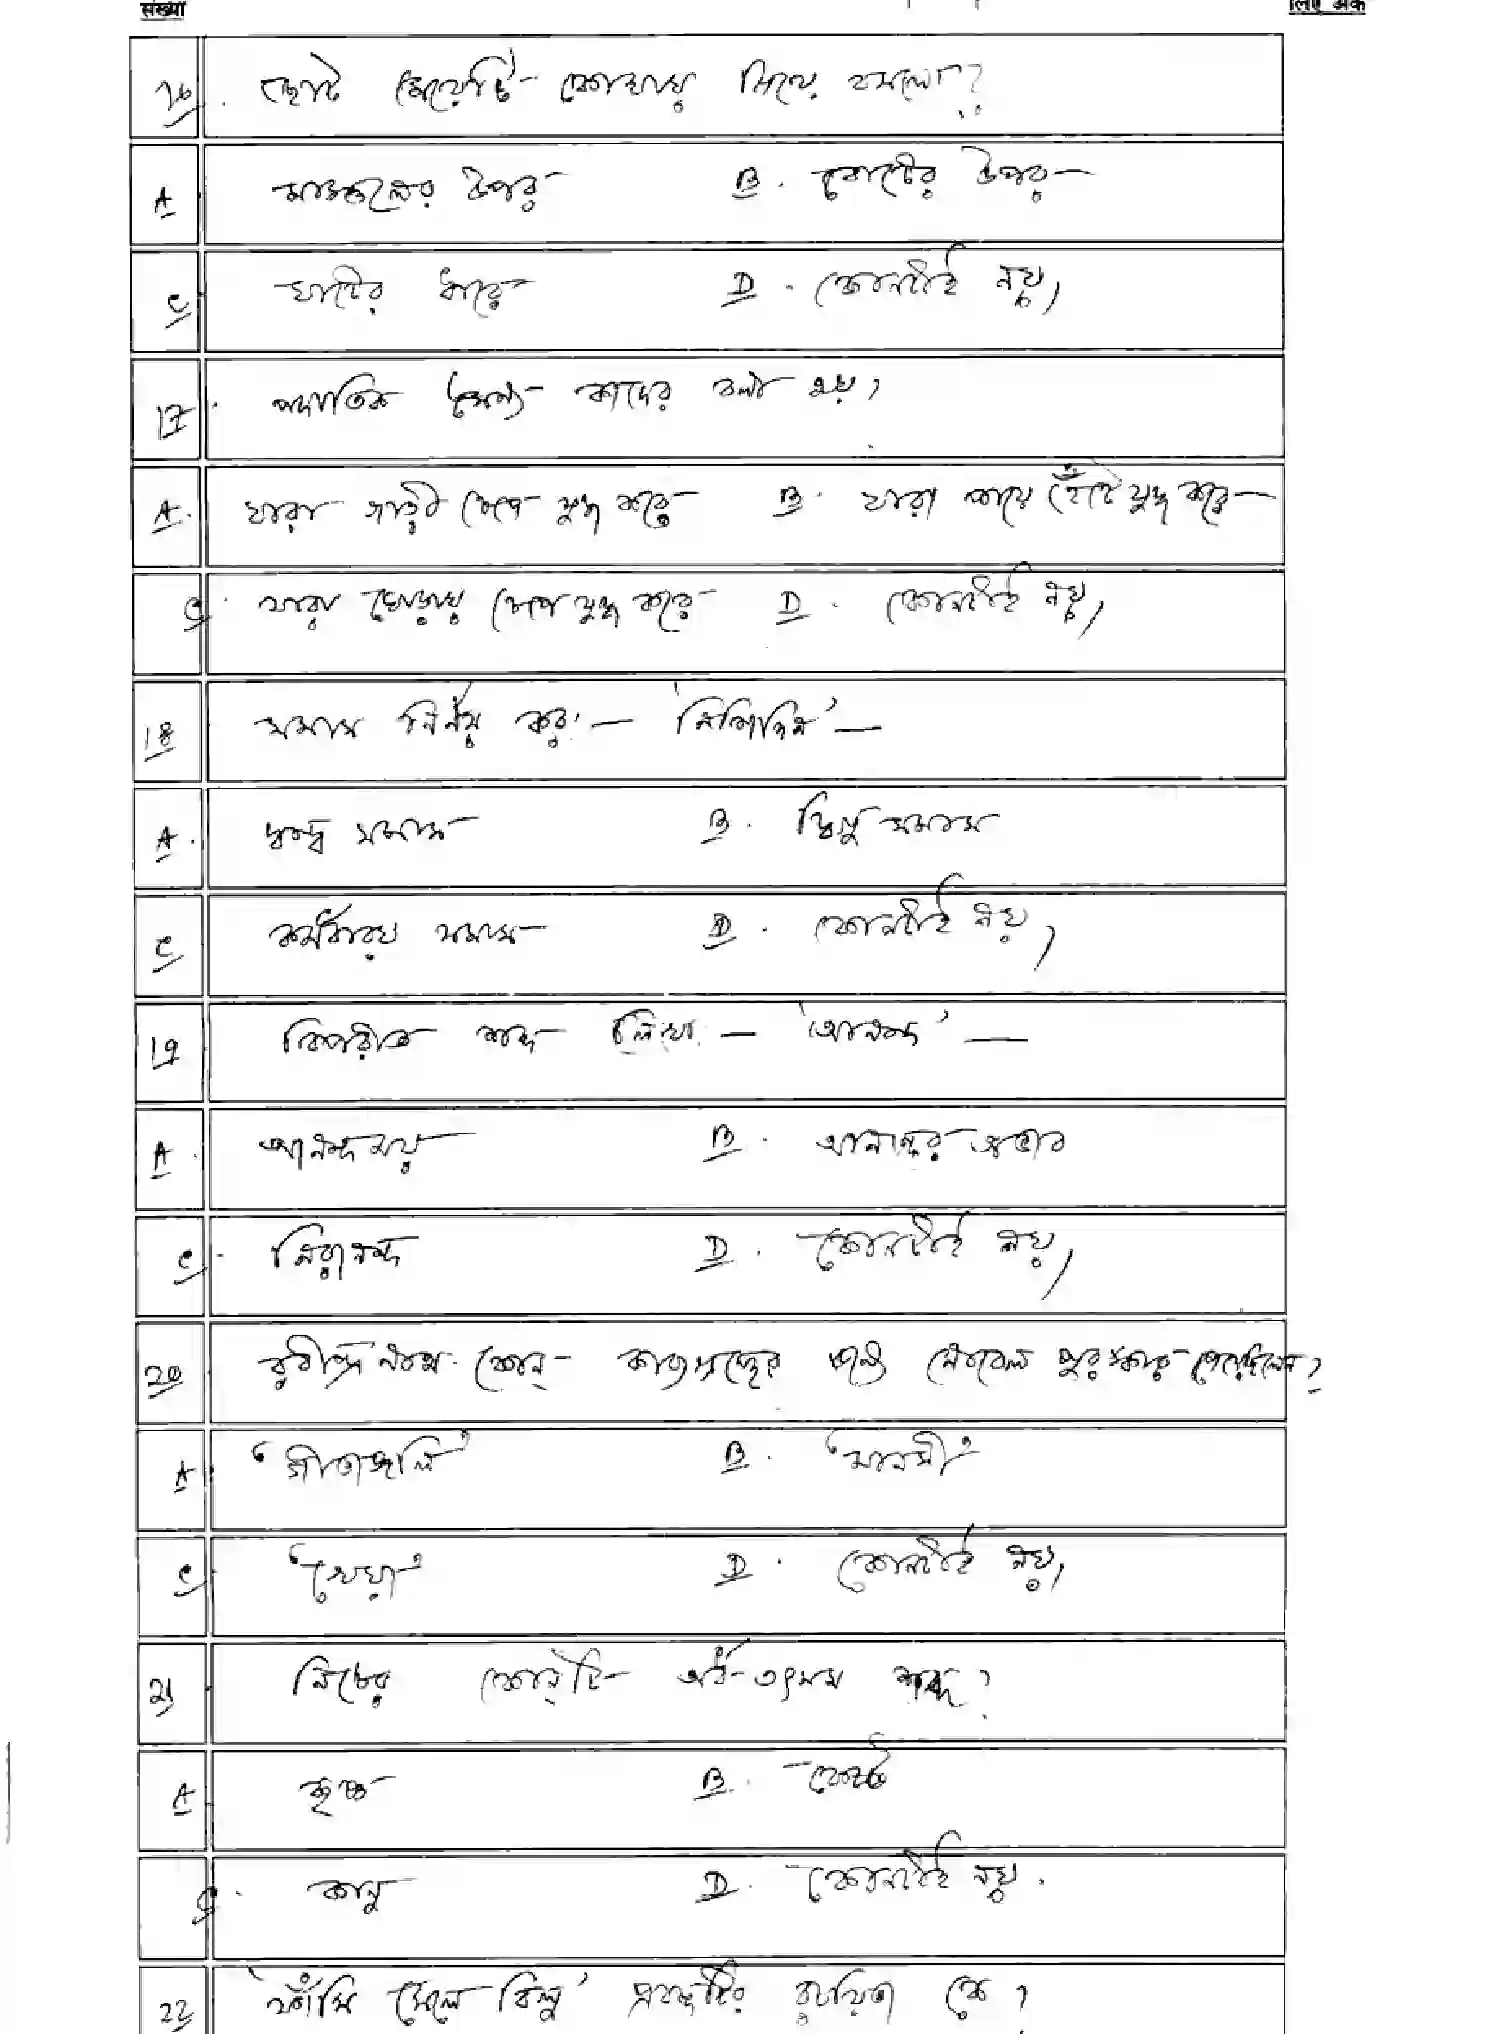 संख्या
लिए अंक
16. ছোট মেয়েটি কোথায় গিয়ে বসলো?
A মাস্তুলের উপর B. বোটের উপর
C ঘাটের ধারে D. কোনটাই নয়,
17. পদাতিক সৈন্য কাদের বলা হয়?
A. যারা গাড়ী চেপে যুদ্ধ করে B. যারা পায়ে হেঁটে যুদ্ধ করে
C. যারা ঘোড়ায় চেপে যুদ্ধ করে D. কোনটাই নয়,
18 সমাস নির্ণয় কর:— 'নিশিদিন' —
A. দ্বন্দ্ব সমাস B. দ্বিগু সমাস
C কর্মধারয় সমাস D. কোনটাই নয়,
19 বিপরীত শব্দ লিখ: — 'আনন্দ' —
A. আনন্দময় B. আনন্দের অভাব
C. নিরানন্দ D. কোনটাই নয়,
20 রবীন্দ্রনাথ কোন্ কাব্যগ্রন্থের জন্য নোবেল পুরস্কার পেয়েছিলেন?
A 'গীতাঞ্জলি' B. 'মানসী'
C. 'খেয়া' D. কোনটাই নয়,
21 নিচের কোন্‌টি অর্ধ-তৎসম শব্দ?
A কৃষ্ণ B. কেষ্ট
C. কানু D. কোনটাই নয়.
22 'ফাঁসি সেলে বিলু' প্রবন্ধটির রচয়িতা কে?